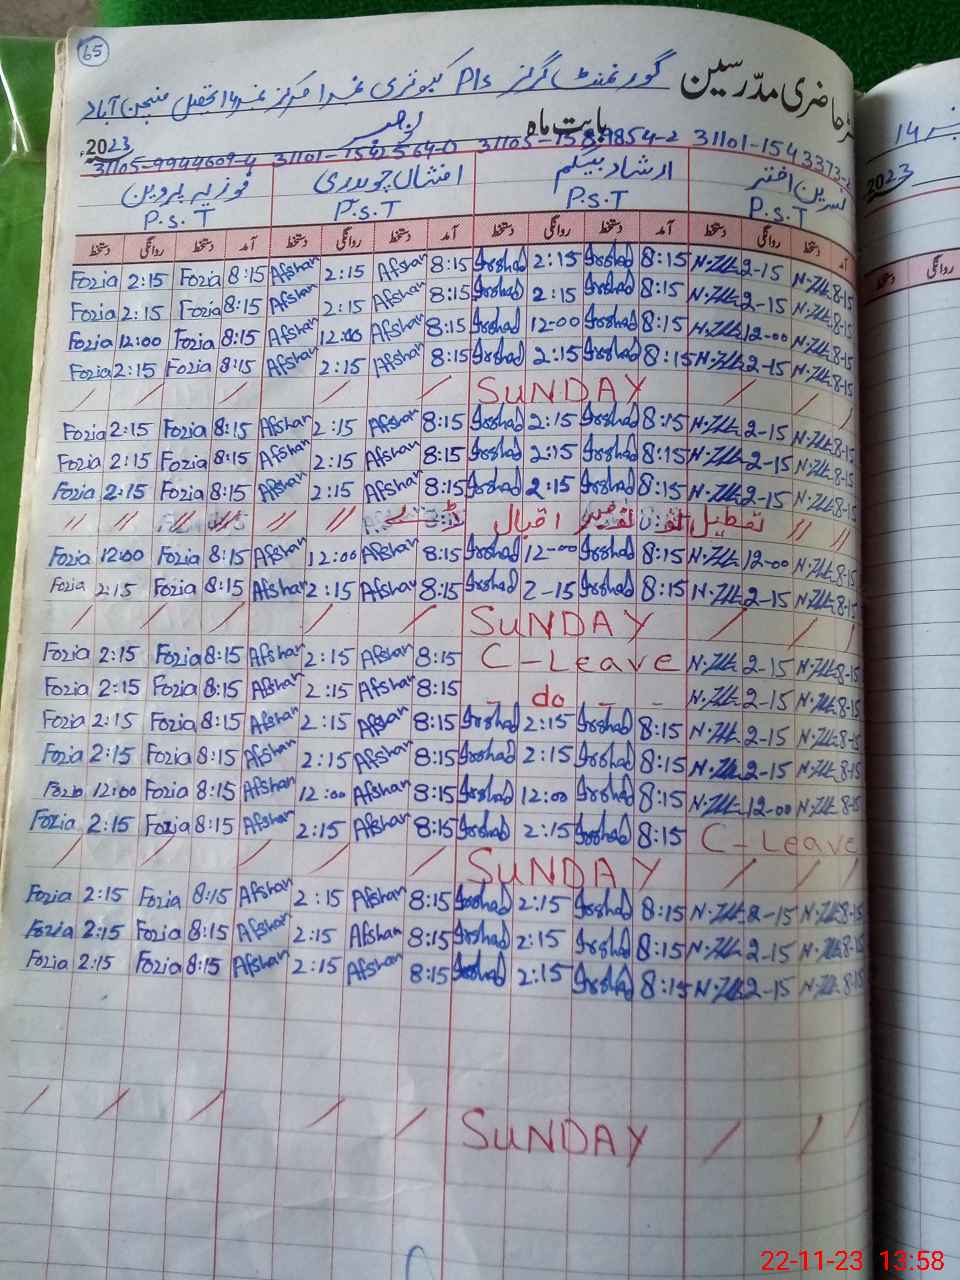 65
حاضری مدرسین گورنمنٹ گرلز P/s کبوتری نمبر 1 مرکز نمبر 14 تحصیل منچن آباد
بابت ماہ نومبر 2023ء
31105-9944609-4 31101-1542564-0 31105-1589854-2 31101-1543373-2
نسرین اختر ارشاد بیگم افشاں چوہدری فوزیہ پروین
P.S.T P.S.T P.S.T P.S.T
آمد دستخط روانگی دستخط آمد دستخط روانگی دستخط آمد دستخط روانگی دستخط آمد دستخط روانگی دستخط
Fozia 2:15 Fozia 8:15 Afshan 2:15 Afshan 8:15 Irshad 2:15 Irshad 8:15 2-15 8-15
Fozia 2:15 Fozia 8:15 Afshan 2:15 Afshan 8:15 Irshad 2:15 Irshad 8:15 2-15 8-15
Fozia 12:00 Fozia 8:15 Afshan 12:00 Afshan 8:15 Irshad 12-00 Irshad 8:15 12-00 8-15
Fozia 2:15 Fozia 8:15 Afshan 2:15 Afshan 8:15 Irshad 2:15 Irshad 8:15 2-15 8-15
/ / / / / SUNDAY / / /
Fozia 2:15 Fozia 8:15 Afshan 2:15 Afshan 8:15 Irshad 2:15 Irshad 8:15 2-15 8-15
Fozia 2:15 Fozia 8:15 Afshan 2:15 Afshan 8:15 Irshad 2:15 Irshad 8:15 2-15 8-15
Fozia 2:15 Fozia 8:15 Afshan 2:15 Afshan 8:15 Irshad 2:15 Irshad 8:15 2-15 8-15
تعطیل اقبال ڈے
Fozia 12:00 Fozia 8:15 Afshan 12:00 Afshan 8:15 Irshad 12-00 Irshad 8:15 12-00 8-15
Fozia 2:15 Fozia 8:15 Afshan 2:15 Afshan 8:15 Irshad 2-15 Irshad 8:15 2-15 8-15
/ / / / / SUNDAY / / /
Fozia 2:15 Fozia 8:15 Afshan 2:15 Afshan 8:15 C-Leave 2-15 8-15
Fozia 2:15 Fozia 8:15 Afshan 2:15 Afshan 8:15 - do - - 2-15 8-15
Fozia 2:15 Fozia 8:15 Afshan 2:15 Afshan 8:15 Irshad 2:15 Irshad 8:15 2-15 8-15
Fozia 2:15 Fozia 8:15 Afshan 2:15 Afshan 8:15 Irshad 2:15 Irshad 8:15 2-15 8-15
Fozia 12:00 Fozia 8:15 Afshan 12:00 Afshan 8:15 Irshad 12:00 Irshad 8:15 12-00 8-15
Fozia 2:15 Fozia 8:15 Afshan 2:15 Afshan 8:15 Irshad 2:15 Irshad 8:15 C-Leave
/ / / / / SUNDAY / / /
Fozia 2:15 Fozia 8:15 Afshan 2:15 Afshan 8:15 Irshad 2:15 Irshad 8:15 2-15 8-15
Fozia 2:15 Fozia 8:15 Afshan 2:15 Afshan 8:15 Irshad 2:15 Irshad 8:15 2-15 8-15
Fozia 2:15 Fozia 8:15 Afshan 2:15 Afshan 8:15 Irshad 2:15 Irshad 8:15 2-15 8-15
/ / / / / SUNDAY / / /
14
2023
روانگی دستخط
22-11-23 13:58